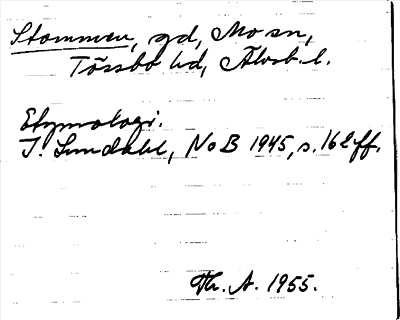 Stommen, gd, Mo sn,
Tössbo hd, Älvsb. l.
Etymologi.
I. Lundahl, NoB 1945, s. 162 ff.
Th. A. 1955.